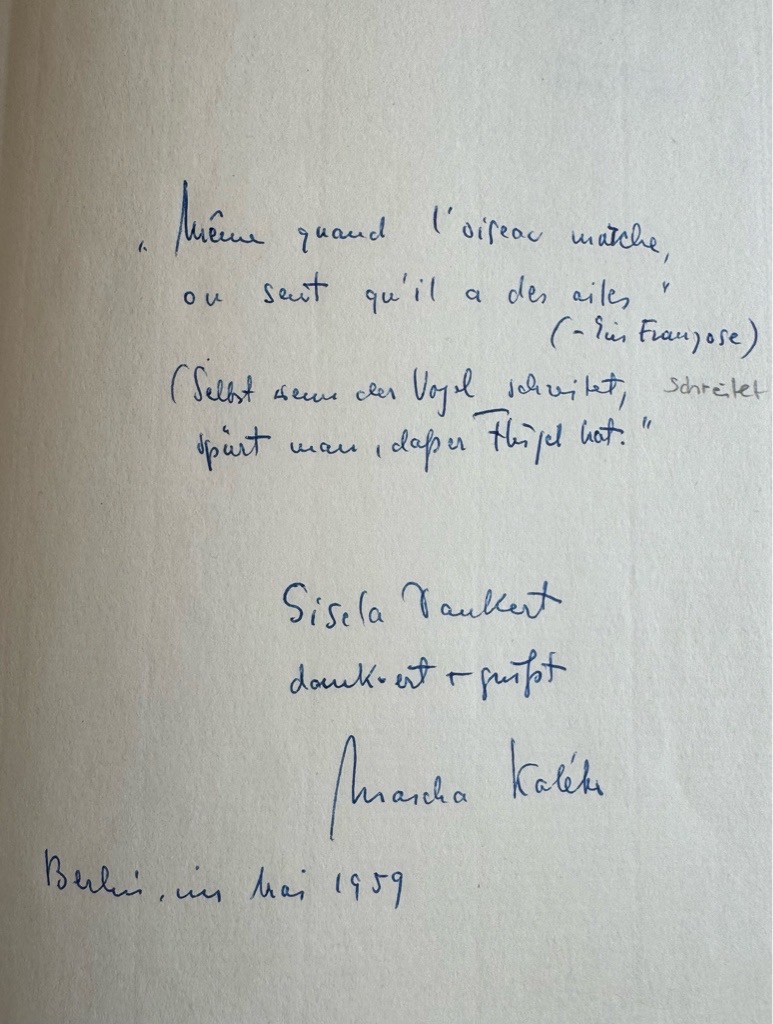 „Même quand l'oiseau marche,
on sent qu'il a des ailes"
(- Ein Franzose)
(Selbst wenn der Vogel schreitet, schreitet
spürt man, daß er Flügel hat."
Gisela Dankert
dank-ert + grüßt
Mascha Kaléko
Berlin, im Mai 1959